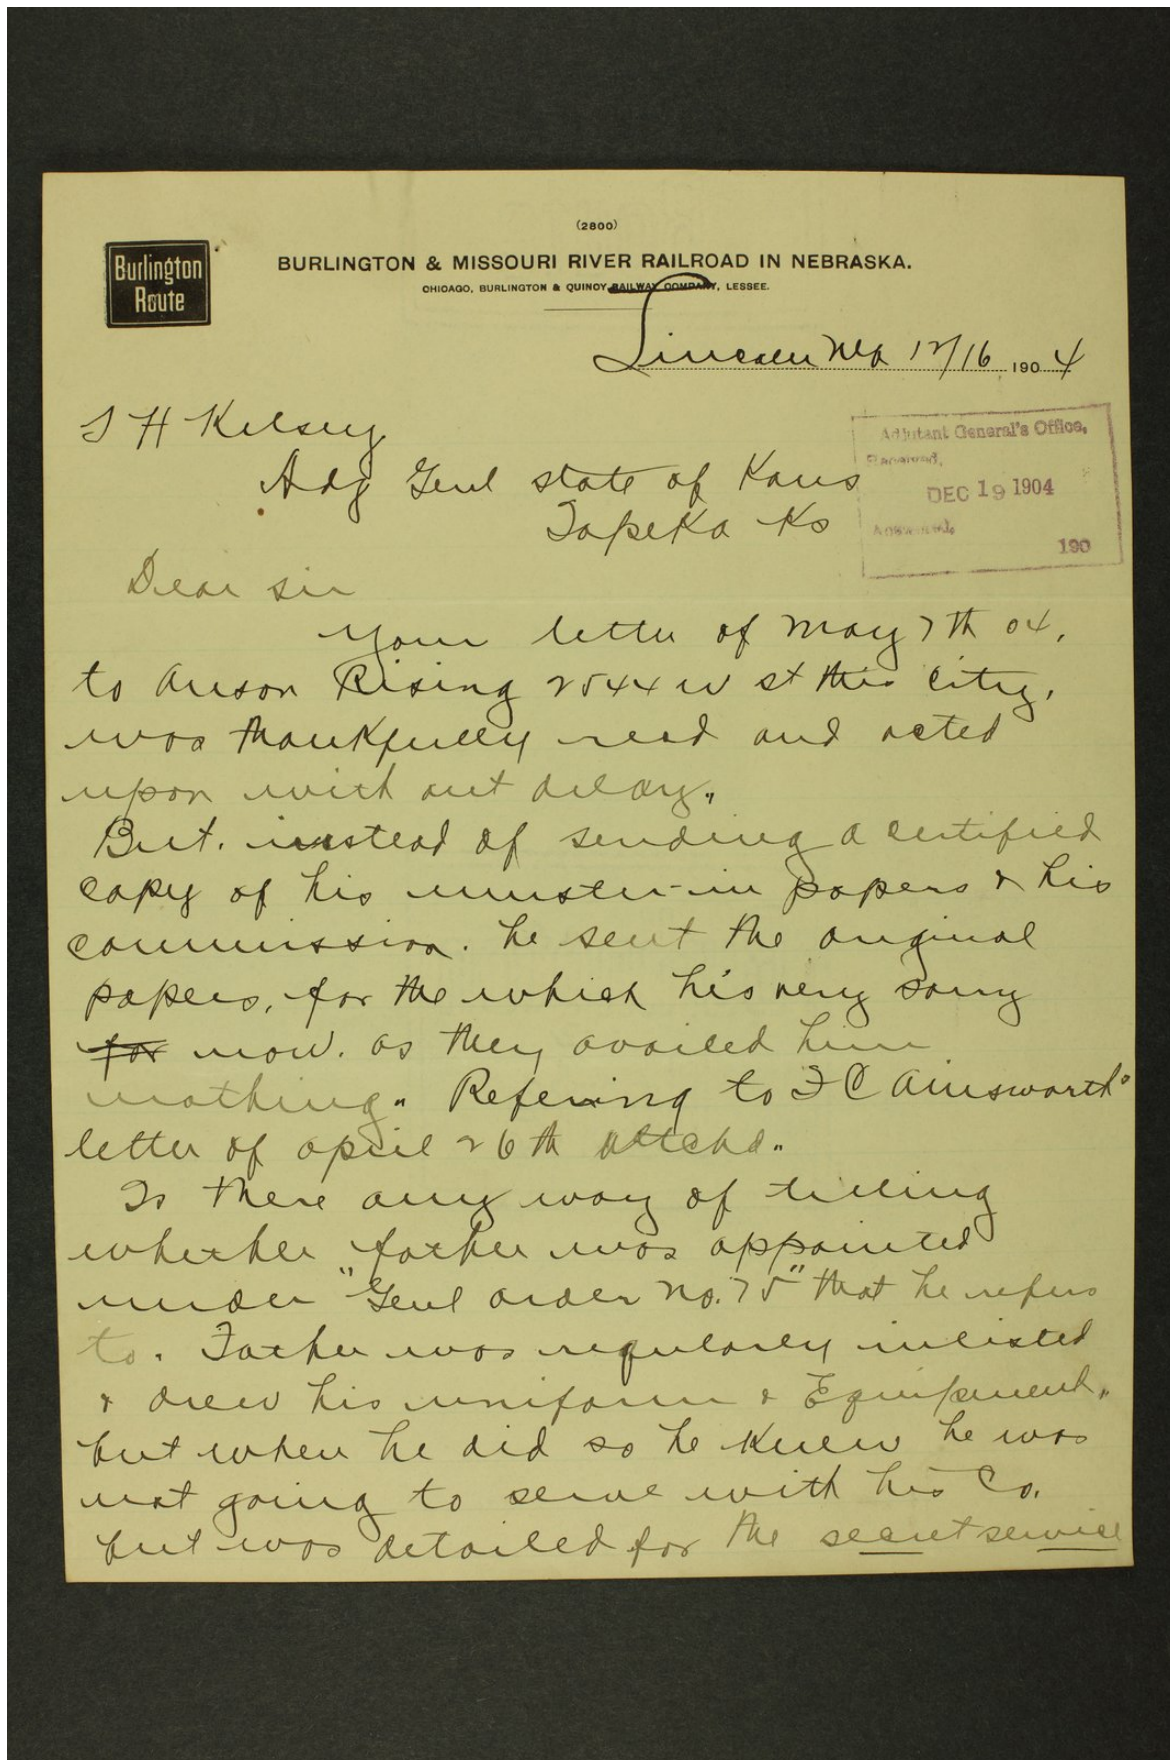 (2800)
Burlington
Route
BURLINGTON & MISSOURI RIVER RAILROAD IN NEBRASKA.
CHICAGO, BURLINGTON & QUINCY RAILWAY COMPANY, LESSEE.
Lincoln Neb 12/16 1904
S H Kelsey
Adj Genl state of Kans
Topeka Ks
Adjutant General's Office,
Received,
DEC 19 1904
Answered,
190
Dear sir
Your letter of May 7th 04,
to Anson Rising 2544 W st this City,
was thankfully read and acted
upon with out delay.
But. instead of sending a certified
copy of his muster-in papers & his
commission. he sent the original
papers, for the which his very sorry
for now. as they availed him
nothing. Refering to F C Ainsworth's
letter of april 26th attchd.
Is there any way of telling
whether father was appointed
under "Genl order No. 75" that he refers
to. Father was regularly inlisted
& drew his uniform & Equipment,
but when he did so he knew he was
not going to serve with his Co.
but was detailed for the secret service